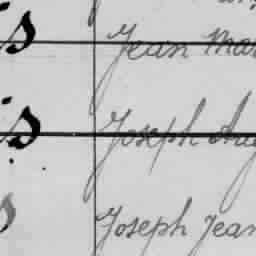 is Jean Mar
is Joseph Aug
s Joseph Jean